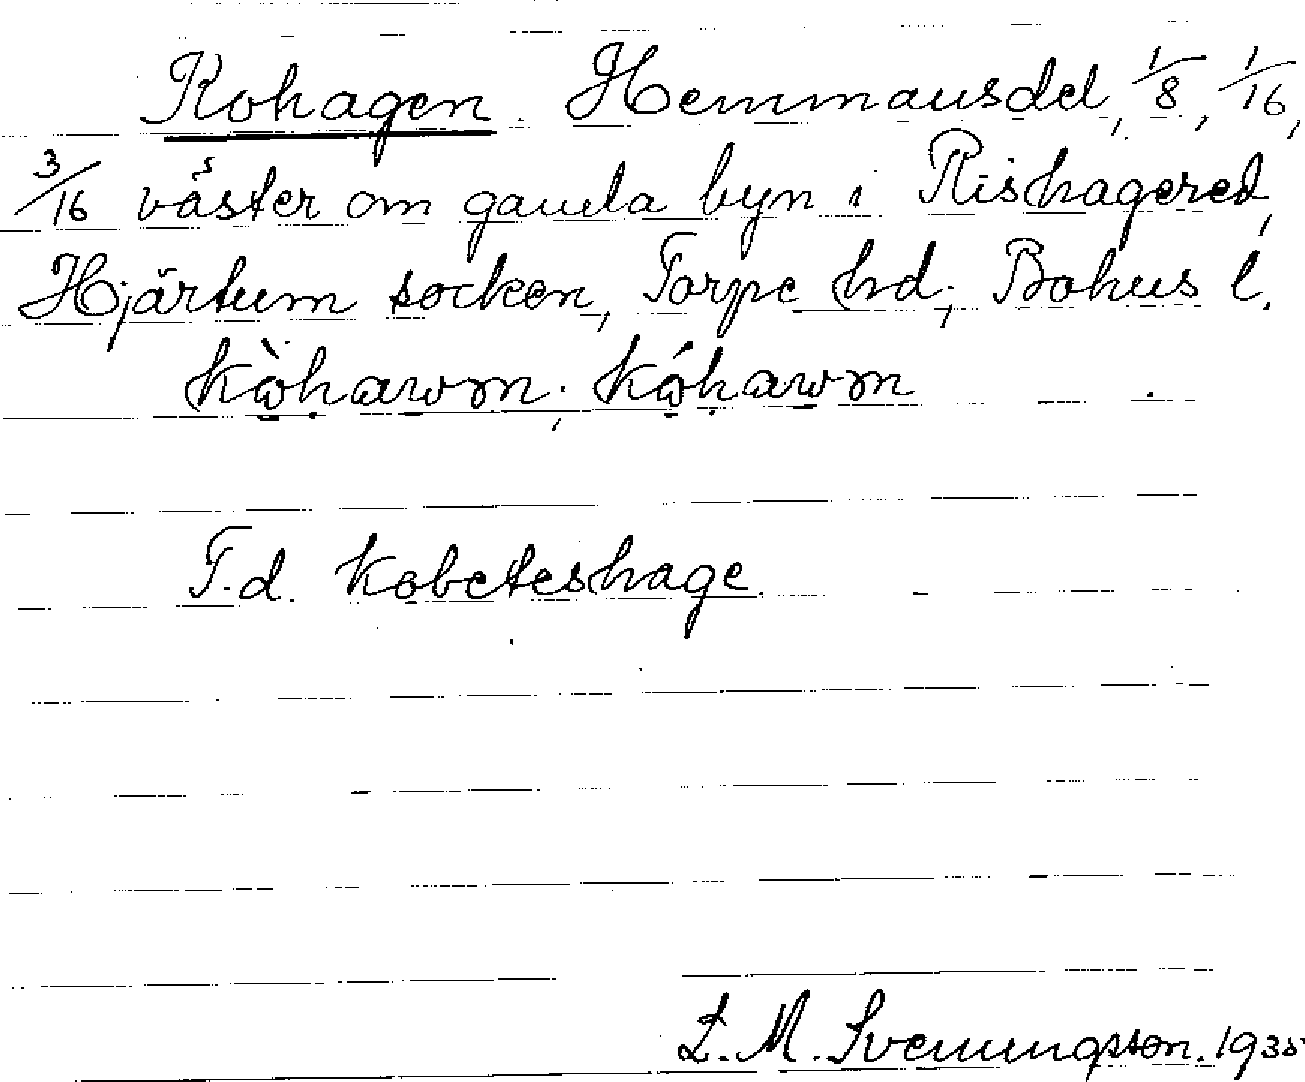 Kohagen. Hemmansdel, 1/8, 1/16,
3/16 väster om gamla byn i Rishagered,
Hjärtum socken, Torpe hd; Bohus l.
kòhawm; kóhawm
F.d. kobeteshage.
L. M. Svenungsson. 1935